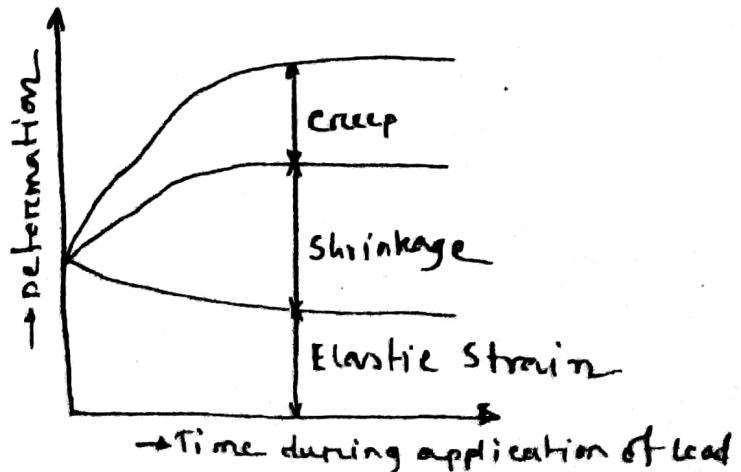 → Deformation
Creep
Shrinkage
Elastic Strain
→ Time during application of Load